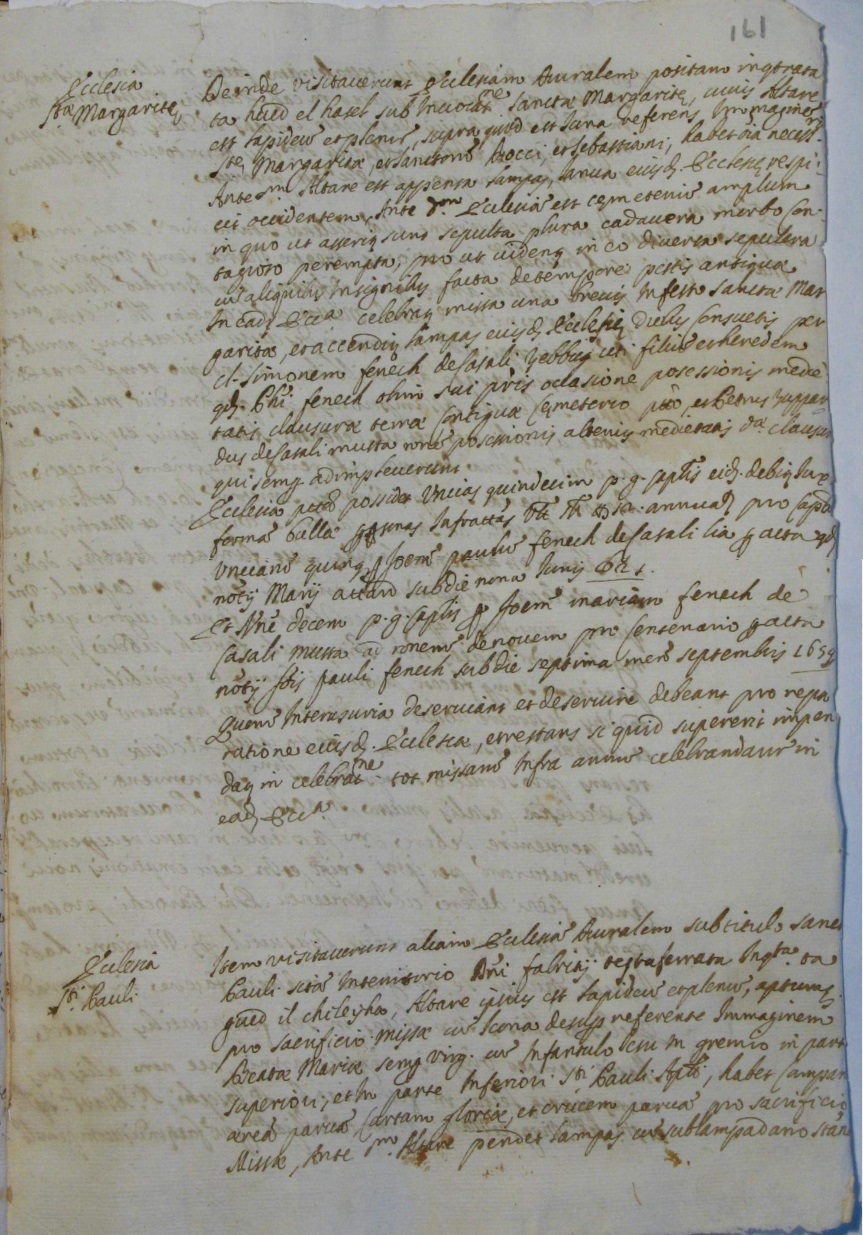 161
Ecclesia
Sta Margaritę
Deinde visitaverunt Ecclesiam Ruralem positam in qtrata
ta hued el hasel sub invocne Sanctæ Margaritę, cuius Altare
est lapideũ et plenũ, supra quod est Icona referens Immagines
Stę Margaritæ, et Sanctorũ Rocci, et Sebastiani, habet oĩa necess.
Ante sm Altare est appensa lampas, Ianua eiusd. Ecclesię respi-
cit occidentem, Ante dm Ecclesiã est cęmeteriũ amplum
in quo ut asserit sunt sepulta plura cadavera morbo con-
tagioso perempta, pro ut videnť in eo diversa sepulcra
cũ aliquibus insignibus facta de tempore pestis antiquæ
In ead Ecca celebrať missa una brevis in festo Sanctæ Mar
garitæ, et accendiť lampas eiusd Ecclesię diebus consuetis per
Cl. Simonem fenech de Casali Zebbug uti filiũ et heredem
qd. fenech olim sui pris occasione possessionis medie
tatis clausuræ terræ contiguæ Cęmeterio pto, et Petrus Zuppar
dus de Casali musta rone possessionis alterius medietatis dæ clausuræ
qui semp adimpleverunt.
Ecclesia pta possidet Uncias quindecim p. g. captis eid. debit. Iuxe
formã bullæ annual pro capta
Unciarũ quinq. p Joem paulũ fenech de Casali lia p acta qd
notij Marij attard sub die nona Iunij 661.
Et Uñe decem p. g. captis p Joem mariam fenech de
Casali musta ad ronem de novem pro centenario p acta
notij Jois pauli fenech sub die septima mens septembris 1659
Quem Interusuria deserviant et deservire debeant pro repa
ratione eiusd. Ecclesiæ, et restans si quid supererit impen
dať in celebratne tot missarũ infra annũ celebrandarũ in
ead Ecca.
Ecclesia
Sti Pauli
Item visitaverunt aliam Ecclesiã Ruralem sub titulo Sancti
Pauli sitã in territorio Dni fabritij testaferrata in qta ta
gued il chileyha, Altare ipsius est lapideũ et plenũ, aptumq.
pro sacrificio missæ cũ Icona desup referente Immaginem
Beatæ Mariæ semp virg. cũ Infantulo Iesu in gremio in parte
superiori, et in parte inferiori Sti Pauli Apti, habet campan
æreã parvã Cartam gloriæ, et crucem parvã pro sacrificio
Missæ, Ante sm Altare pendet lampas cũ sublampadario stan